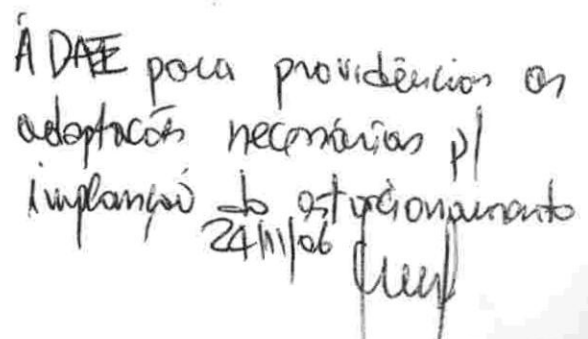 À DAE para providenciar as
adaptações necessárias p/
implanção do estacionamento
24/11/06